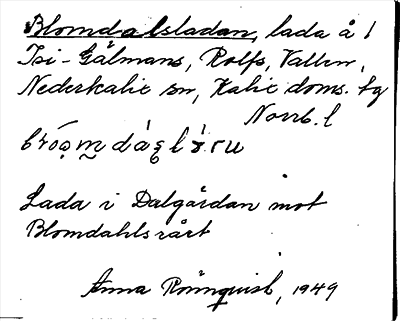 Blomdalsladan, lada å 1
Isi-Gålmans, Rolfs, Vallen,
Nederkalix sn, Kalix doms. tg
Norrb. l
Lada i Dalgårdan mot
Blomdahlsrået
Anna Rönnquist, 1949